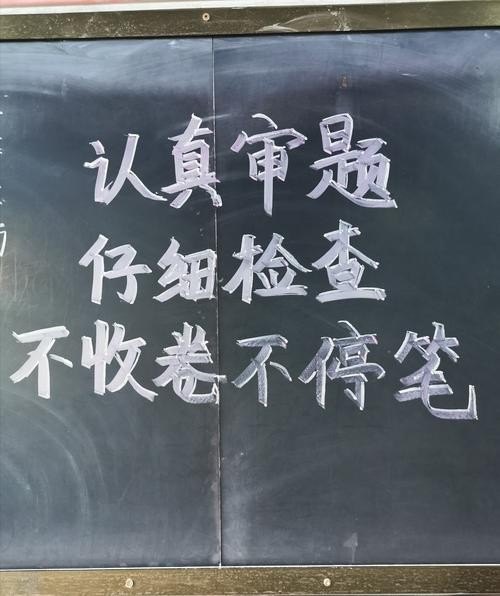 认真审题
仔细检查
不收卷不停笔